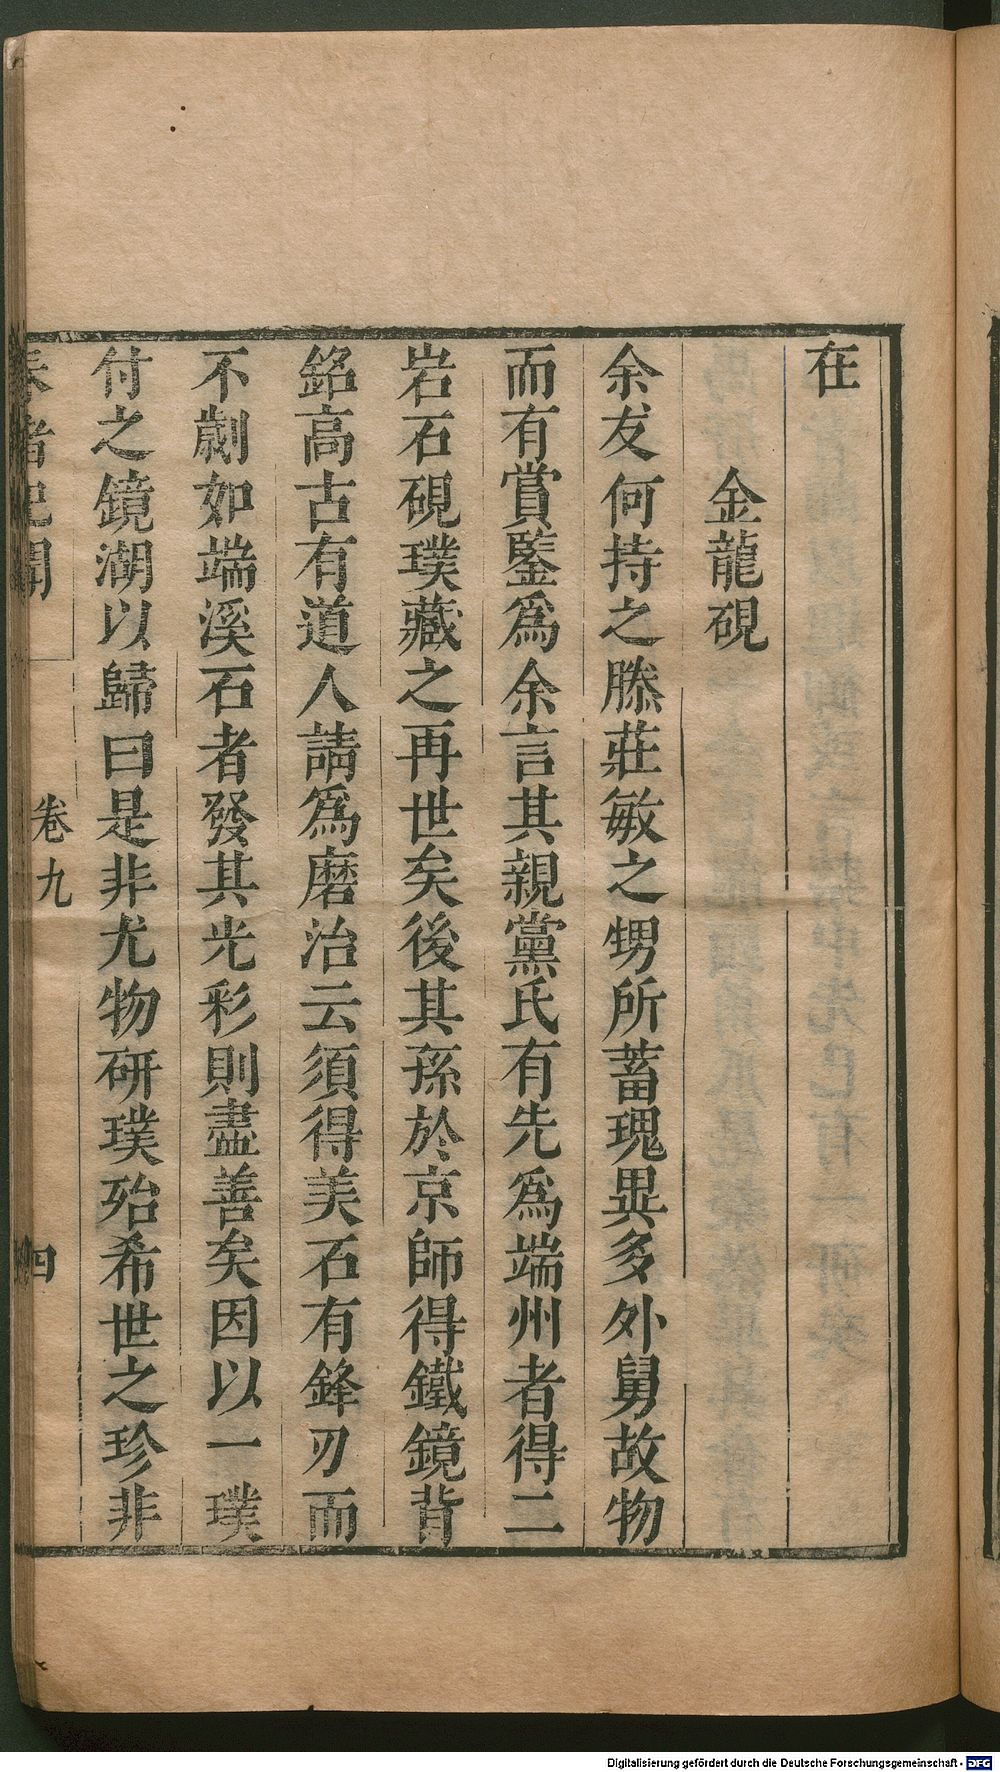 在
金龍硯
余友何持之滕莊敏之甥所蓄瑰異多外舅故物
而有賞鑒爲余言其親黨氏有先爲端州者得二
岩石硯璞藏之再世矣後其孫於京師得鐵鏡背
銘高古有道人請爲磨治云須得美石有鋒刃而
不劌如端溪石者發其光彩則盡善矣因以一璞
付之鏡湖以歸曰是非尤物研璞殆希世之珍非
春渚紀聞
卷九
四
Digitalisierung gefördert durch die Deutsche Forschungsgemeinschaft - DFG